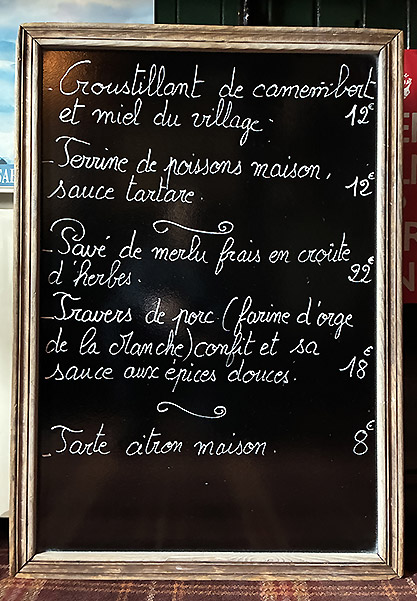 - Croustillant de camembert
et miel du village. 12€
- Terrine de poissons maison,
sauce tartare. 12€
- Pavé de merlu frais en croûte
d'herbes. 22€
- Travers de porc (farine d'orge
de la Manche) confit et sa
sauce aux épices douces. 18€
- Tarte citron maison. 8€